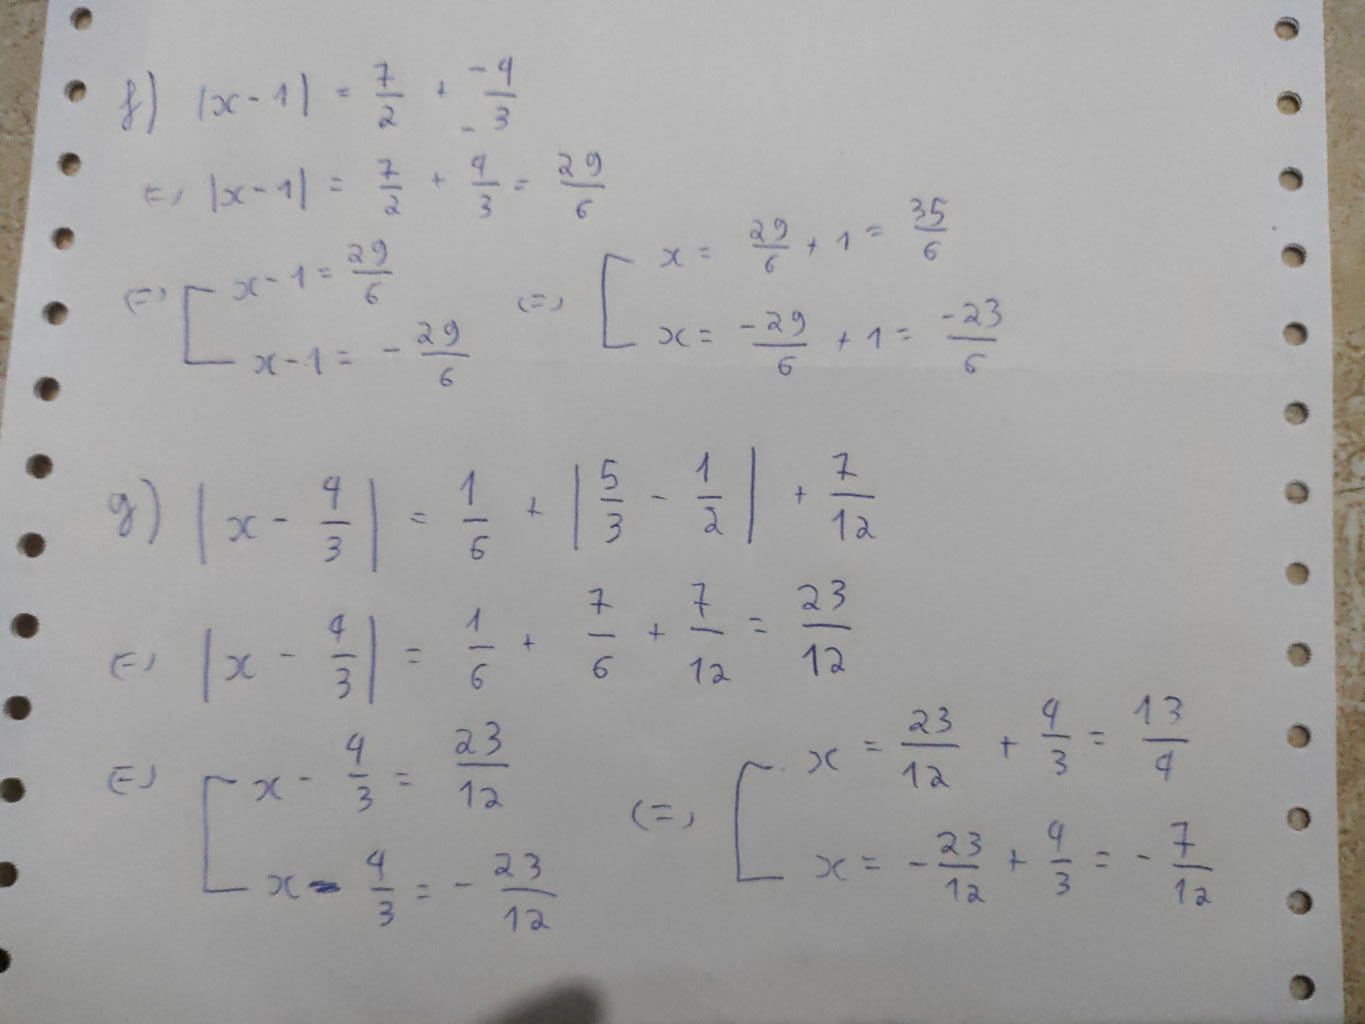 f) |x - 1| = 7/2 + -4/-3
(=) |x - 1| = 7/2 + 4/3 = 29/6
(=) [ x - 1 = 29/6 (=) [ x = 29/6 + 1 = 35/6
x - 1 = - 29/6 x = -29/6 + 1 = -23/6
g) |x - 4/3| = 1/6 + |5/3 - 1/2| + 7/12
(=) |x - 4/3| = 1/6 + 7/6 + 7/12 = 23/12
(=) [ x - 4/3 = 23/12 (=) [ x = 23/12 + 4/3 = 13/4
x - 4/3 = - 23/12 x = - 23/12 + 4/3 = - 7/12